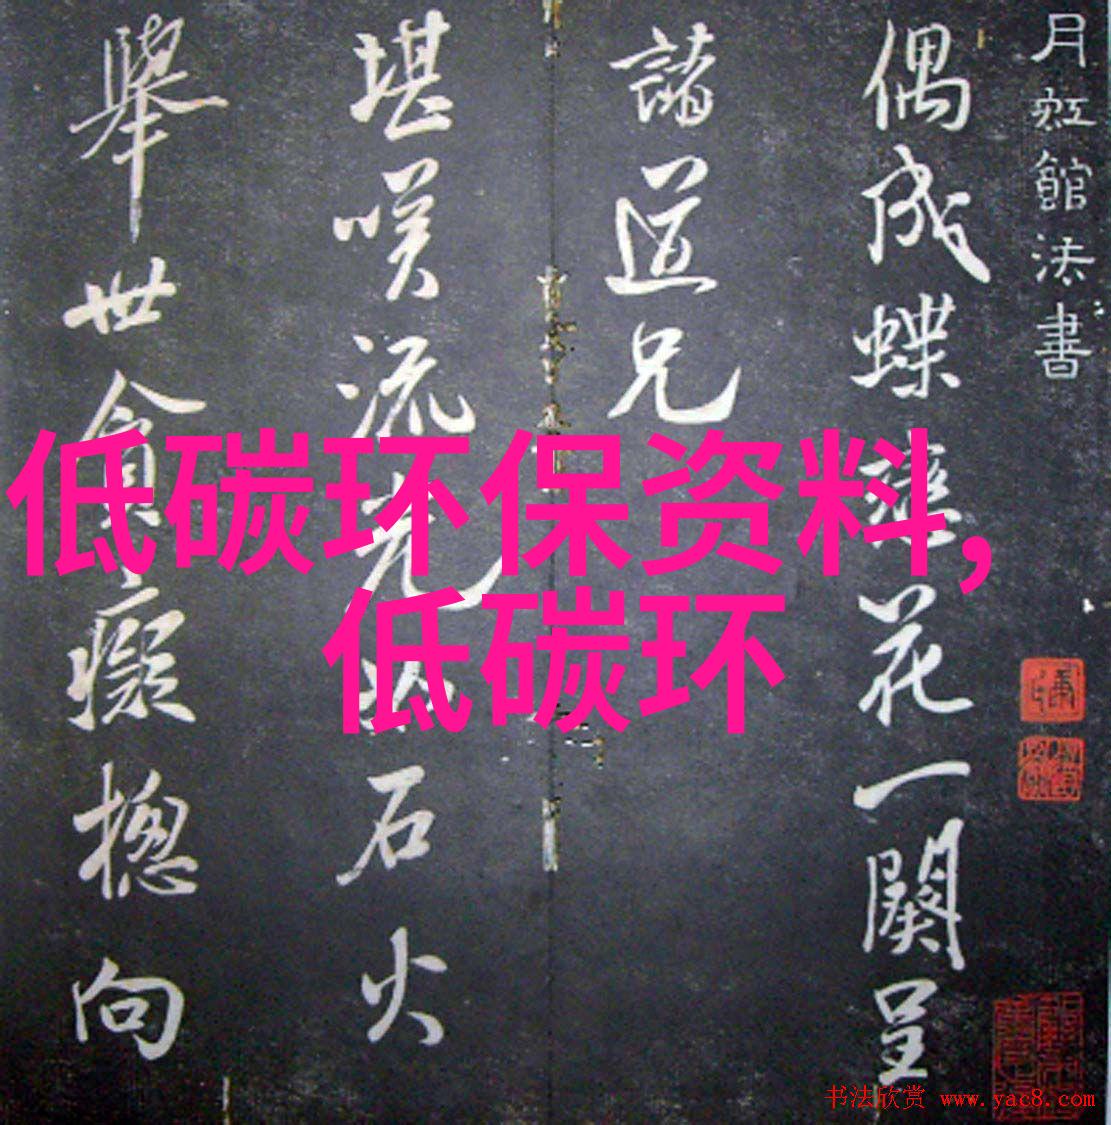 月虹館法書
偶成蝶戀花一闋呈
諸道兄
堪咲流光如石火
舉世貪癡摠向
低碳环保资料,
低碳环
书法欣赏 www.yac8.com